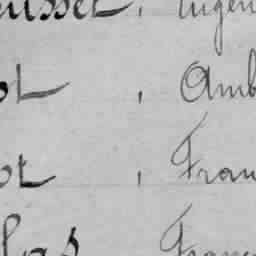 usset, Eugèn
ot, Amb
ot, Fran
las Franç